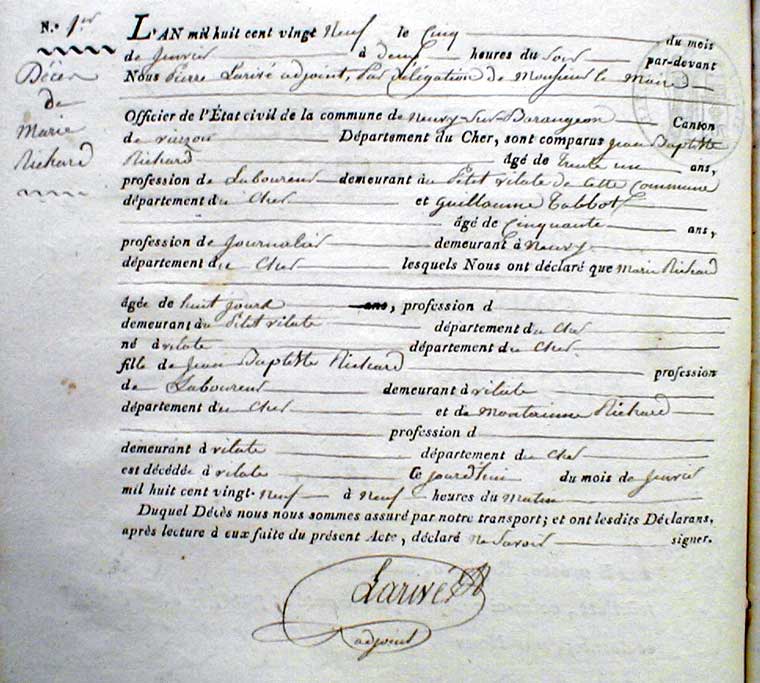 N.° 1er
Décès
de
Marie
Richard
L'AN mil huit cent vingt Neuf le Cinq du mois
de Janvier à deux heures du Soir par-devant
Nous Pierre Larivé adjoint, par délégation de Monsieur le Maire
Officier de l'État civil de la commune de Neuvy-Sur-Barangeon Canton
de vierzon Département du Cher, sont comparus Jean Baptiste
Richard âgé de trente un ans,
profession de Laboureur demeurant au Petit vilate de Cette Commune
département du Cher et Guillaume Tabbot
âgé de Cinquante ans,
profession de Journalier demeurant à Neuvy
département du Cher lesquels Nous ont déclaré que Marie Richard
âgée de huit jours ans, profession d
demeurant au Petit vilate département du Cher
né à vilate département du Cher
fille de Jean Baptiste Richard profession
de Laboureur demeurant à vilate
département du Cher et de Richard
profession d
demeurant à vilate département du Cher
est décédée à vilate Ce jourd'hui du mois de Janvier
mil huit cent vingt-Neuf à Neuf heures du Matin
Duquel Décès nous nous sommes assuré par notre transport; et ont lesdits Déclarans,
après lecture à eux faite du présent Acte, déclaré ne Savoir signer.
Larivé
adjoint